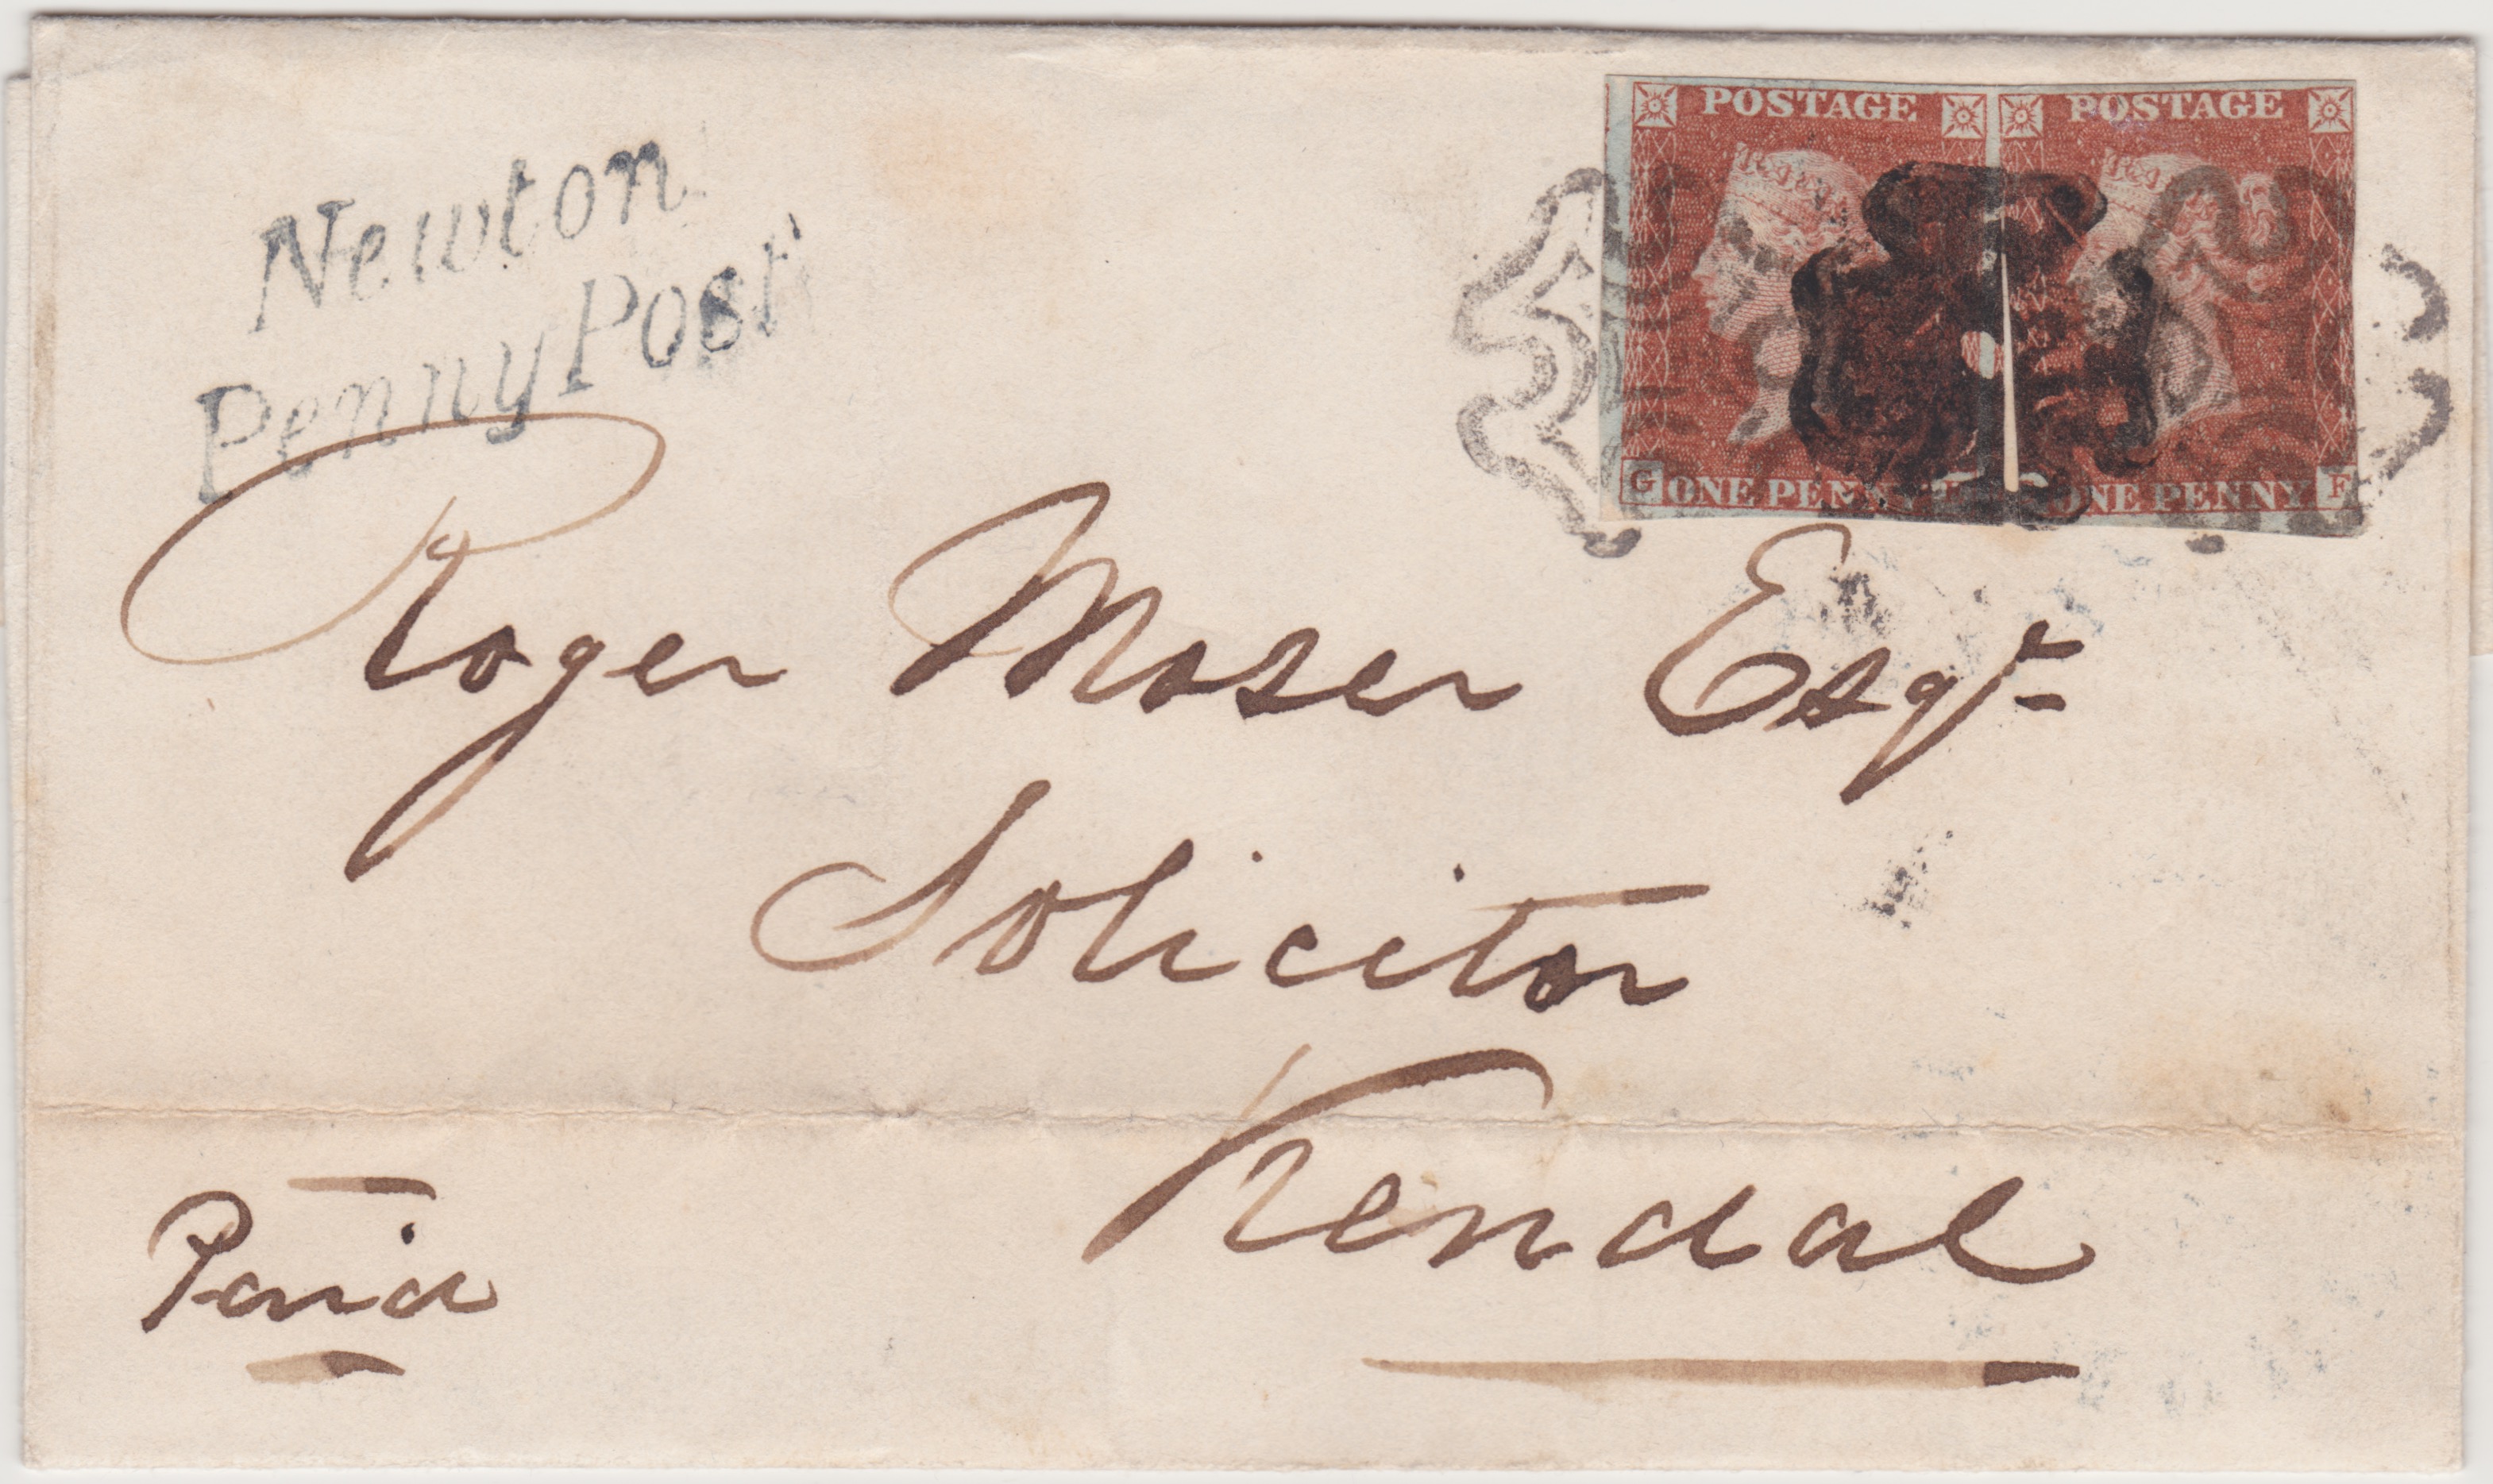 Newton
Penny Post
POSTAGE POSTAGE
G ONE PENNY ONE PENNY F
Roger Moser Esqr
Solicitor
Kendal
Paid